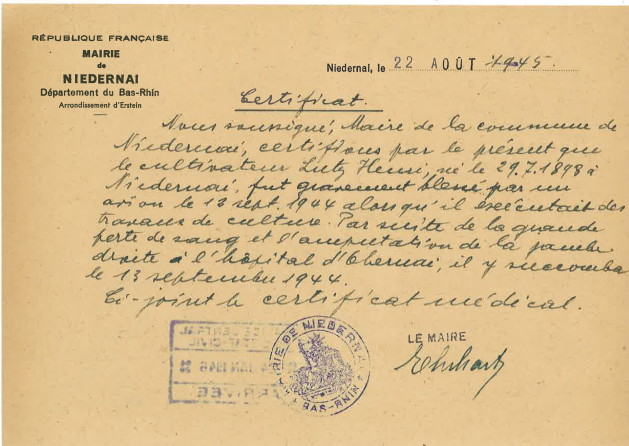 RÉPUBLIQUE FRANÇAISE
MAIRIE
de
NIEDERNAI
Département du Bas-Rhin
Arrondissement d'Erstein
Niedernai, le 22 AOÛT 1945.
Certificat.
Nous soussigné, Maire de la commune de
Niedernai, certifions par le présent que
le cultivateur Lutz Henri, né le 29.7.1898 à
Niedernai, fut gravement blessé par un
avion le 13 sept. 1944 alors qu'il exécutait des
travaux de culture. Par suite de la grande
perte de sang et l'amputation de la jambe
droite à l'hôpital d'Obernai, il y succomba
le 13 septembre 1944.
Ci-joint le certificat médical.
LE MAIRE
MAIRIE DE NIEDERNAI
BAS-RHIN
ARRIVÉE